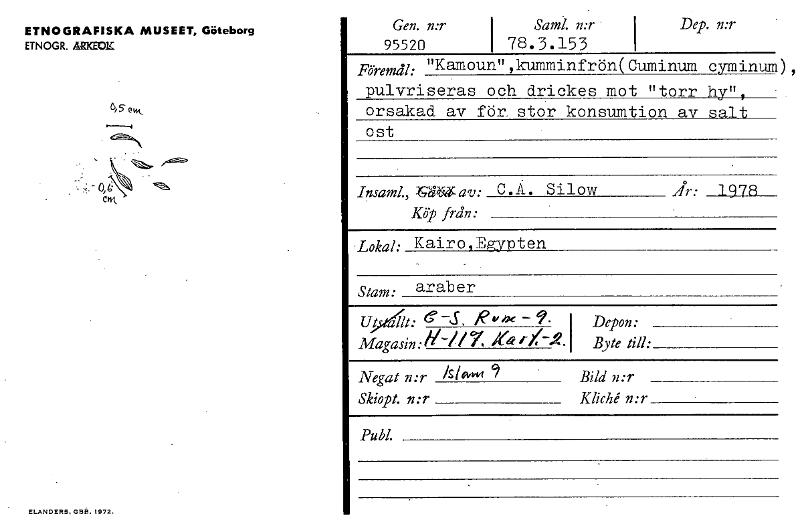 ETNOGRAFISKA MUSEET, Göteborg
ETNOGR. ARKEOL.
0,5 cm
0,6 cm
Gen. n:r Saml. n:r Dep. n:r
95520 78.3.153
Föremål: "Kamoun",kumminfrön(Cuminum cyminum),
pulvriseras och drickes mot "torr hy",
orsakad av för stor konsumtion av salt
ost
Insaml., Gåva av: C.A. Silow År: 1978
Köp från:
Lokal: Kairo,Egypten
Stam: araber
Utställt: C-S. Rum-9. Depon:
Magasin: H-117. Kart.-2. Byte till:
Negat n:r Islam 9 Bild n:r
Skiopt. n:r Kliché n:r
Publ.
ELANDERS, GBG, 1972.